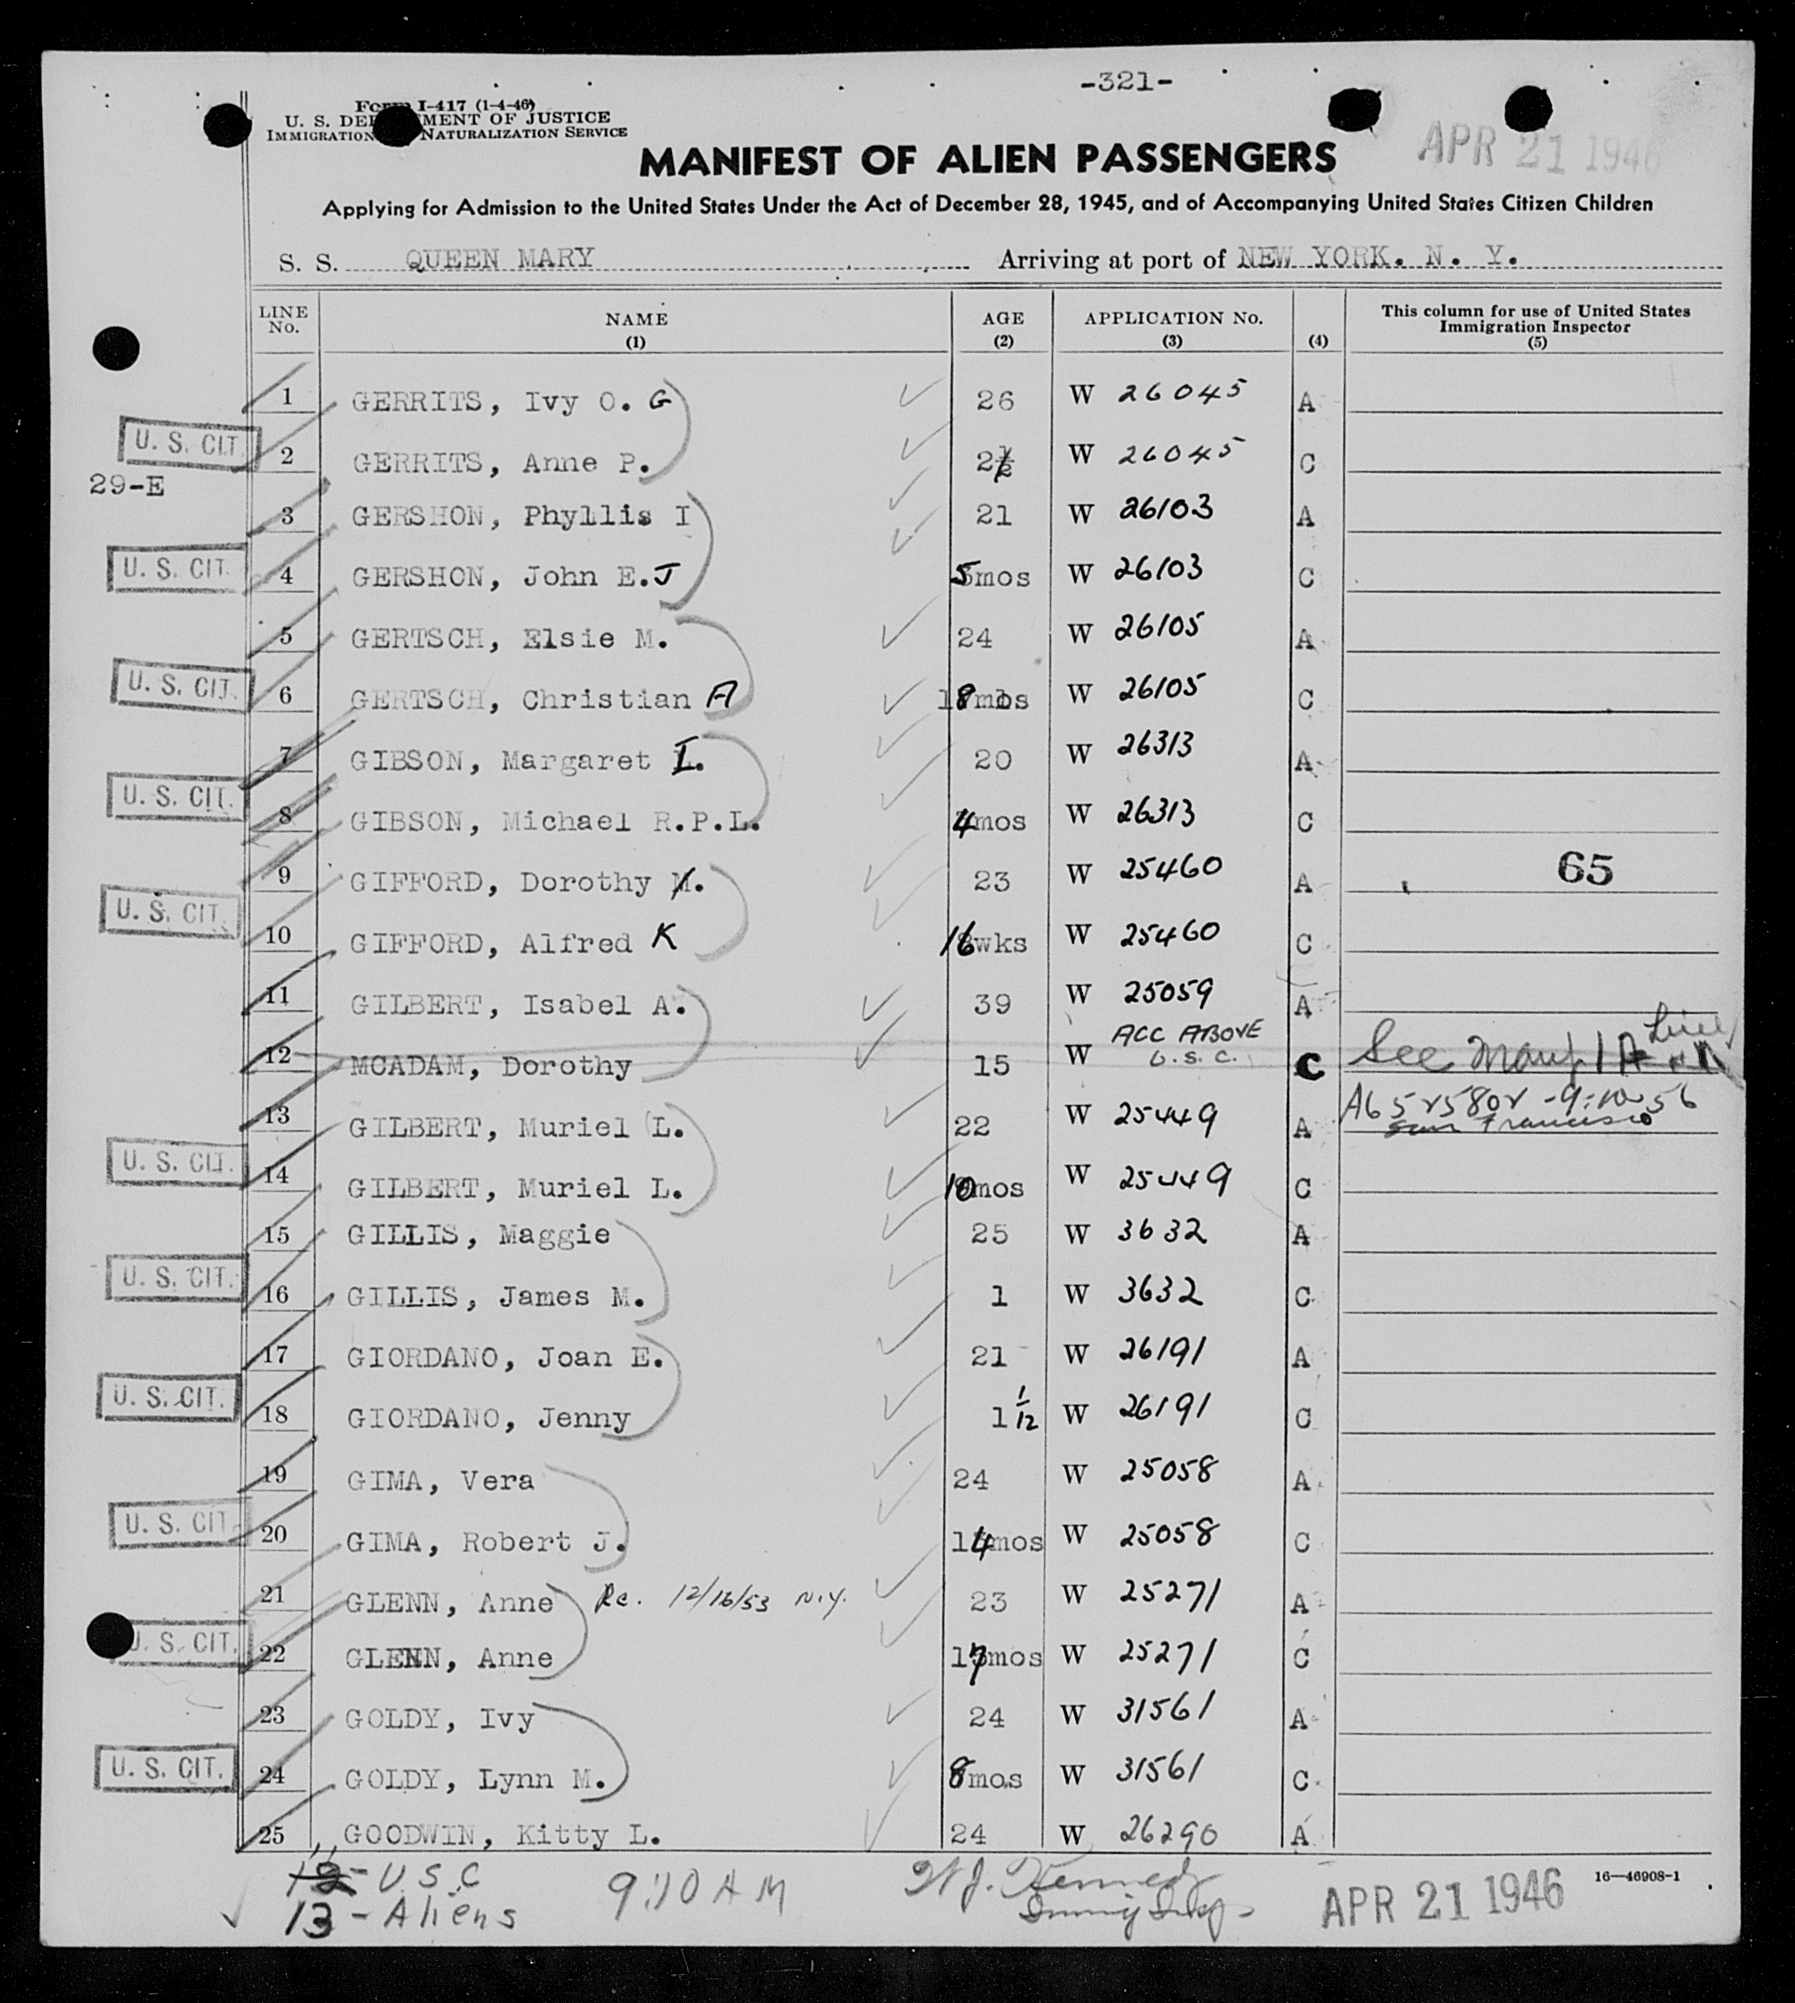 -321-
Form I-417 (1-4-46)
U. S. DEPARTMENT OF JUSTICE
IMMIGRATION NATURALIZATION SERVICE
APR 21 1946
MANIFEST OF ALIEN PASSENGERS
Applying for Admission to the United States Under the Act of December 28, 1945, and of Accompanying United States Citizen Children
S. S. QUEEN MARY Arriving at port of NEW YORK. N. Y.
LINE No. NAME (1) AGE (2) APPLICATION No. (3) (4) This column for use of United States Immigration Inspector (5)
1 GERRITS, Ivy O. G 26 W 26045 A
U. S. CIT. 2 GERRITS, Anne P. 2 W 26045 C
29-E
3 GERSHON, Phyllis I 21 W 26103 A
U. S. CIT. 4 GERSHON, John E. J 5mos W 26103 C
5 GERTSCH, Elsie M. 24 W 26105 A
U. S. CIT. 6 GERTSCH, Christian A 18mos W 26105 C
7 GIBSON, Margaret I. 20 W 26313 A
U. S. CIT. 8 GIBSON, Michael R.P.L. 4mos W 26313 C
9 GIFFORD, Dorothy M. 23 W 25460 A 65
U. S. CIT. 10 GIFFORD, Alfred K 16wks W 25460 C
11 GILBERT, Isabel A. 39 W 25059 A
12 MCADAM, Dorothy 15 W ACC ABOVE U.S.C. C See Manf. 1A Line
13 GILBERT, Muriel L. 22 W 25449 A San Francisco
U. S. CIT. 14 GILBERT, Muriel L. 10mos W 25449 C
15 GILLIS, Maggie 25 W 3632 A
U. S. CIT. 16 GILLIS, James M. 1 W 3632 C
17 GIORDANO, Joan E. 21 W 26191 A
U. S. CIT. 18 GIORDANO, Jenny 1 1/12 W 26191 C
19 GIMA, Vera 24 W 25058 A
U. S. CIT. 20 GIMA, Robert J. 14mos W 25058 C
21 GLENN, Anne Re. 12/16/53 N.Y. 23 W 25271 A
U. S. CIT. 22 GLENN, Anne 17mos W 25271 C
23 GOLDY, Ivy 24 W 31561 A
U. S. CIT. 24 GOLDY, Lynn M. 8mos W 31561 C
25 GOODWIN, Kitty L. 24 W 26290 A
12 - U S C
13 - Aliens
9:10 AM
W J. Kennedy
Immig Insp
APR 21 1946
16—46908-1